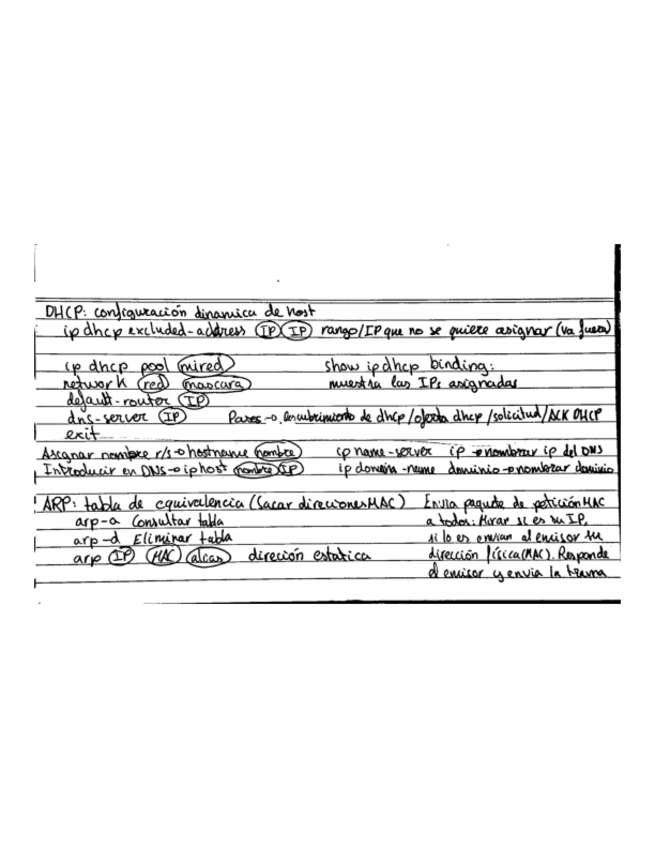 DHCP: configuración dinamica de host
ip dhcp excluded-address (IP) (IP) rango/IP que no se quiere asignar (va fuera)
ip dhcp pool (mired)
network (red) (mascara)
default-router (IP)
dns-server (IP)
exit
show ip dhcp binding:
muestra las IPs asignadas
Pasos → Descubrimiento de dhcp/oferta dhcp/solicitud/ACK DHCP
Asignar nombre r/s → hostname (nombre)
Introducir en DNS → ip host (nombre) (IP)
ip name-server ip → nombrar ip del DNS
ip domain-name dominio → nombrar dominio
ARP: tabla de equivalencia (Sacar direciones MAC)
arp-a Consultar tabla
arp-d Eliminar tabla
arp (IP) (MAC) (alias) direción estatica
Envia paquete de petición MAC
a todos: Mirar si es su IP,
si lo es envian al emisor su
dirección física (MAC). Responde
el emisor y envia la trama